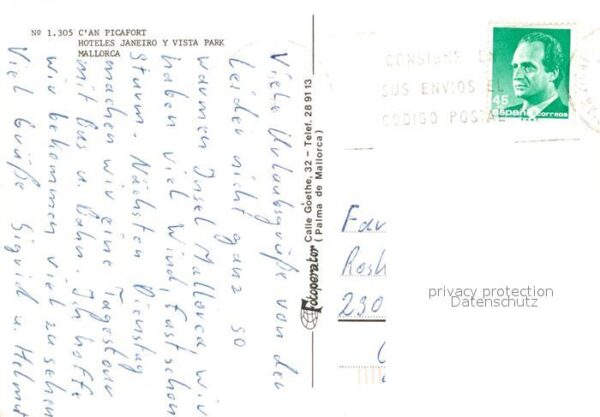 Nº 1.305 C'AN PICAFORT
HOTELES JANEIRO Y VISTA PARK
MALLORCA
Viele Urlaubsgrüße von der
leider nicht ganz so
warmen Insel Mallorca wir
haben viel Wind, fast schon
Sturm. Nächsten Dienstag
machen wir eine Tagestour
mit Bus u. Bahn. Ich hoffe
wir bekommen viel zu sehen
Viel Grüße Sigrid u. Helmut
Fotoperator Calle Goethe, 32 - Telef. 28 91 13
(Palma de Mallorca)
CONSIGNE EN
SUS ENVIOS EL
CODIGO POSTAL
45
España correos
Fa
Rosh
230
privacy protection
Datenschutz